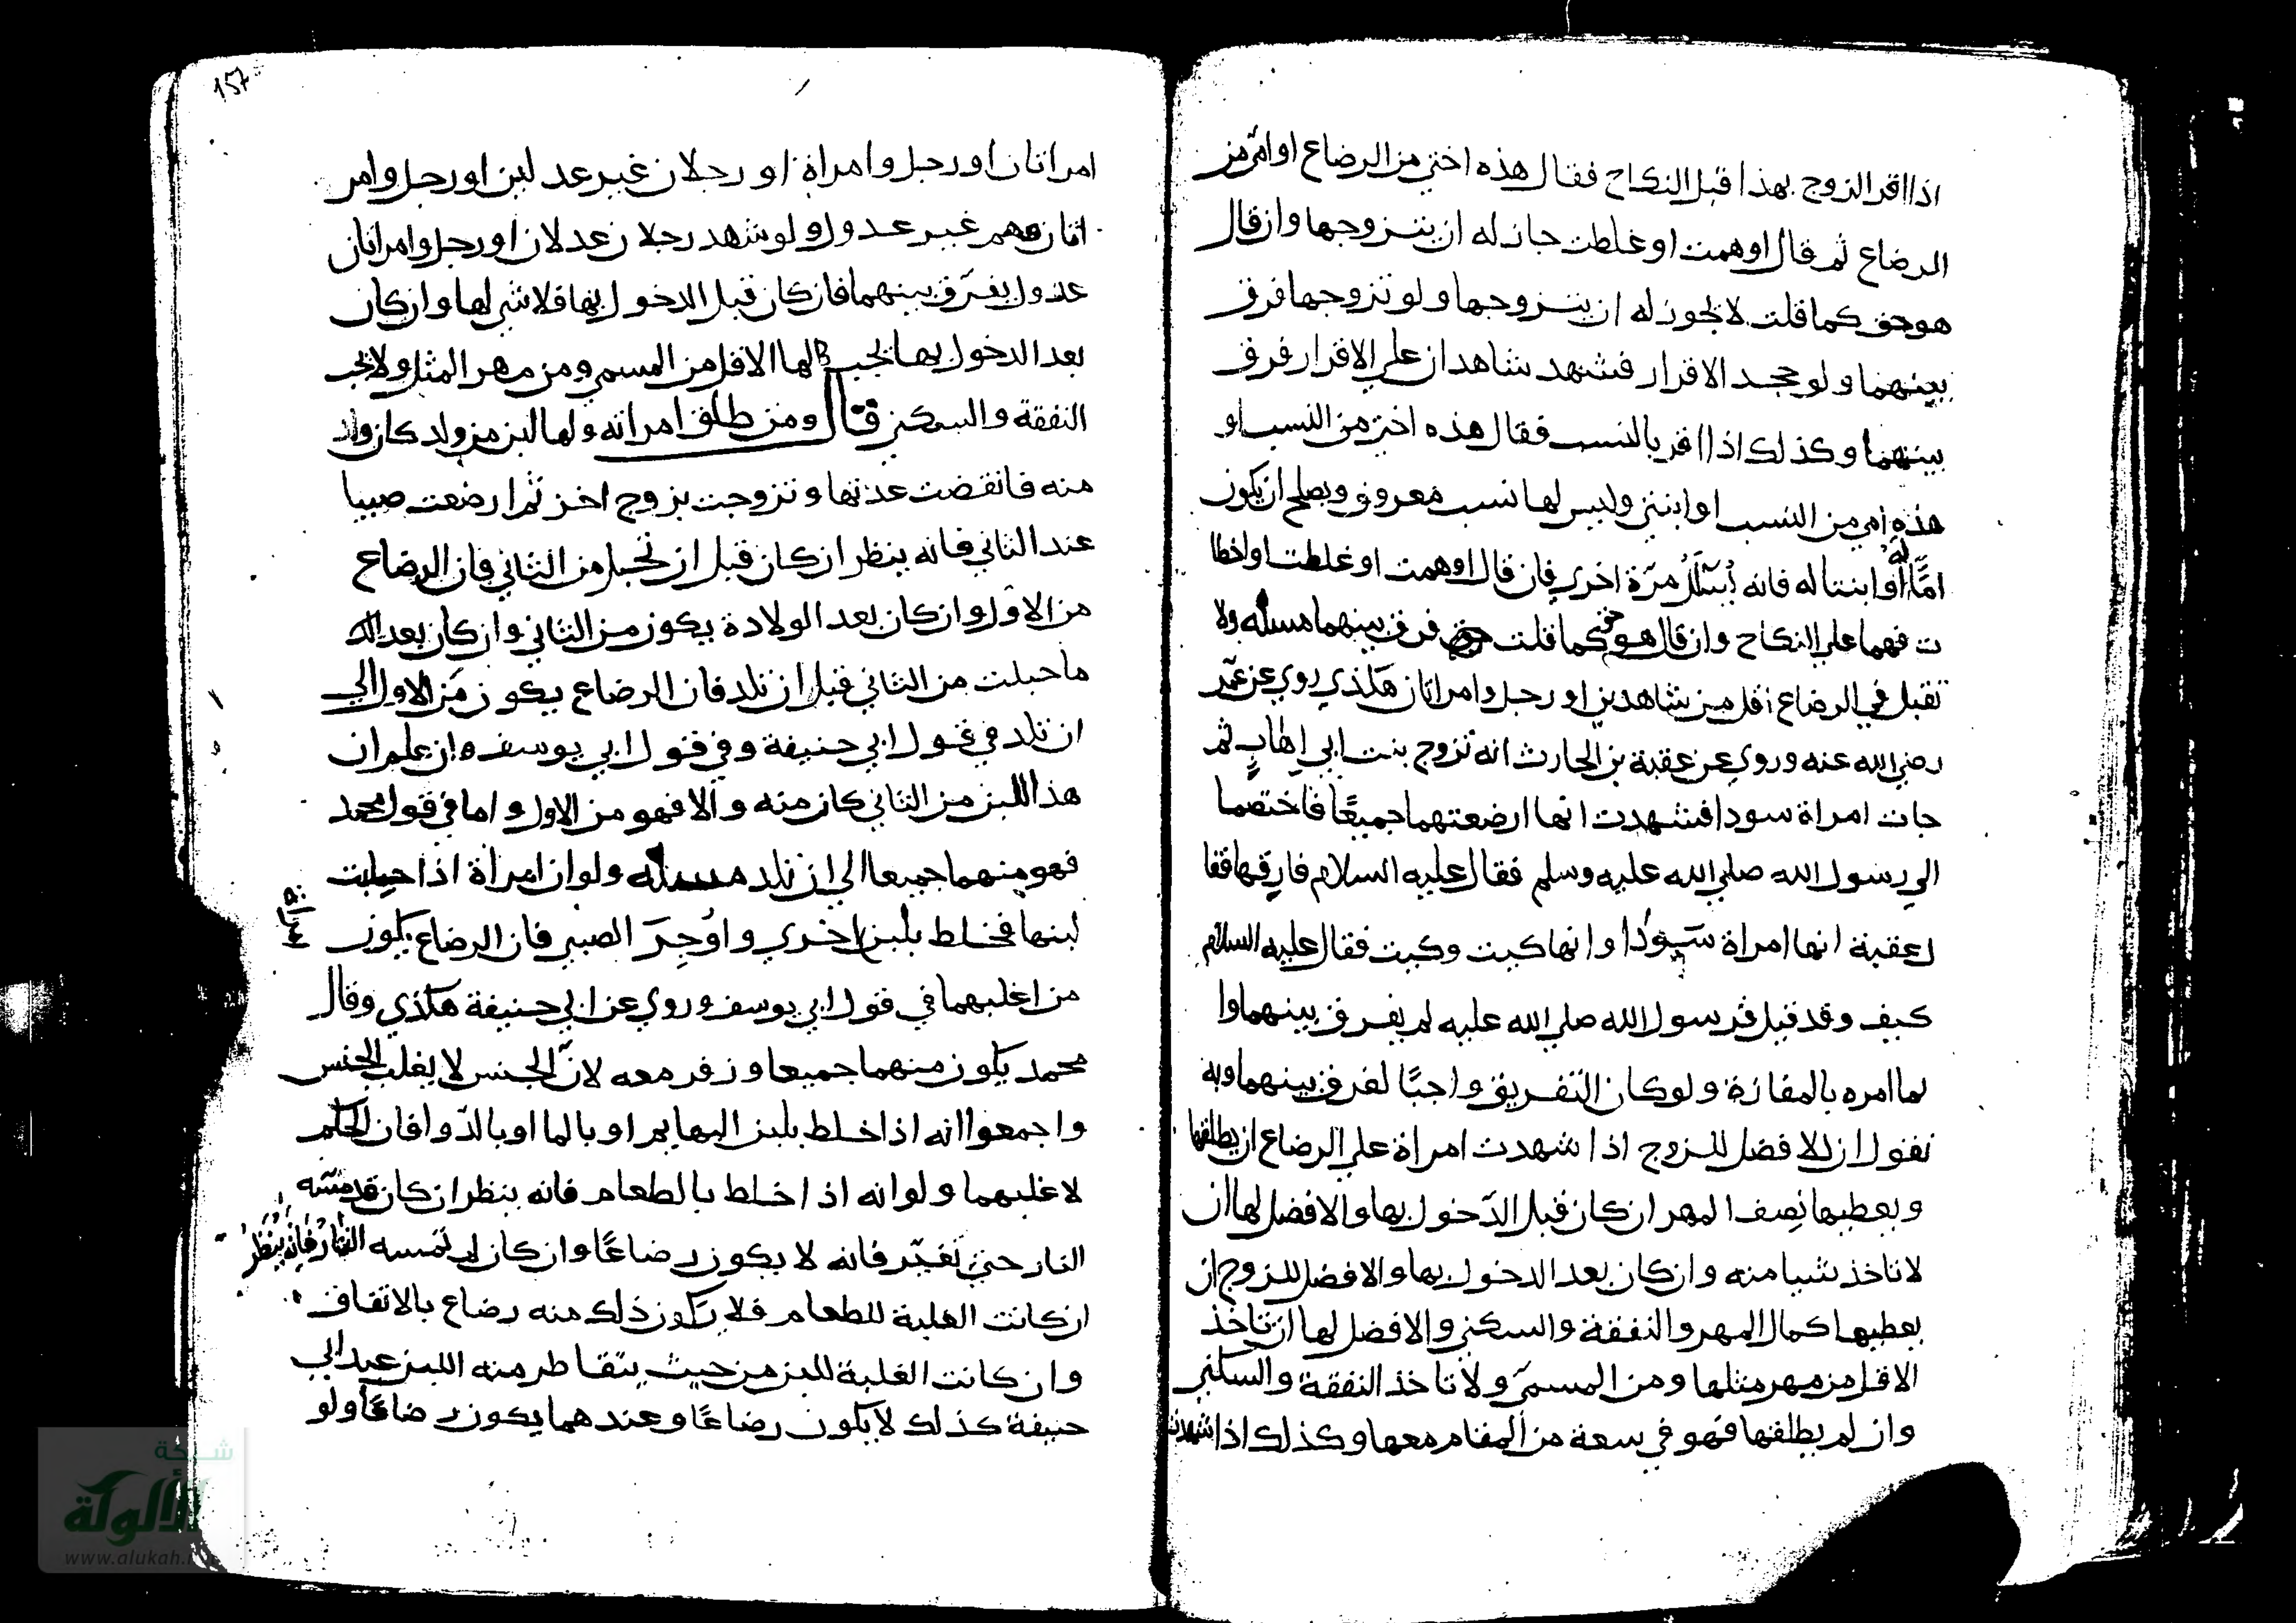 اذا اقر الزوج بهذا قبل النكاح فقال هذه اختي من الرضاع او امي من
الرضاع ثم قال اوهمت او غلطت جاز له ان يتزوجها وان قال
هو حق كما قلت لا يجوز له ان يتزوجها ولو تزوجها فرق
بينهما ولو جحد الاقرار فشهد شاهدان علي الاقرار فرق
بينهما وكذلك اذا اقر بالنسب فقال هذه اختي من النسب او
هذه امي من النسب او ابنتي وليس لها نسب معروف ويصلح ان يكون
امًّا له او ابنتا له فانه يُسَئلُ مرّة اخري فان قال اوهمت او غلطت او اخطا
ت فهما علي النكاح وان قال هو حق كما قلت فرق بينهما مسئله ولا
تقبل في الرضاع اقل من شاهدين او رجل وامراتان هكذي روي عن عمر
رضي الله عنه وروي عن عقبة بن الحارث انه تزوج بنت ابي اِهابٍ ثم
جات امراة سودا فشهدت انها ارضعتهما جميعًا فاختصما
الي رسول الله صلي الله عليه وسلم فقال عليه السلام فارقها فقا
ل عقبة انها امراة سَوْدا وانها كيت وكيت فقال عليه السلام
كيف وقد قيل فرسول الله صلي الله عليه لم يفرق بينهما وا
لما امره بالمفارقة ولو كان التفريق واجبًا لفرق بينهما وبه
نقول ان الافضل للزوج اذا شهدت امراة علي الرضاع ان يطلقها
ويعطيها نصف المهر ان كان قبل الدّخول بها والافضل لها ان
لا تاخذ شيا منه وان كان بعد الدخول بها والافضل للزوج ان
يعطيها كمال المهر والنفقة والسكني والافضل لها ان تاخذ
الاقل من مهر مثلها ومن المسمّي ولا تاخذ النفقة والسكني
وان لم يطلقها فهو في سعة من المقام معها وكذلك اذا شهدت
١٥٧
امراتان او رجل وامراة او رجلان غير عدلين او رجل وامر
اتان وهم غير عدول ولو شهد رجلان عدلان او رجل وامراتان
عدول يفرّق بينهما فان كان قبل الدخول بها فلا شي لها وان كان
بعد الدخول بها يجب لها الاقل من المسمي ومن مهر المثل ولا يجب
النفقة والسكني قال ومن طلق امراته ولها لبن من ولد كان ولد
منه فانقضت عدتها وتزوجت بزوج اخر ثم ارضعت صبيا
عند الثاني فانه ينظر ان كان قبل ان تحبل من الثاني فان الرضاع
من الاوّل وان كان بعد الولادة يكون من الثاني وان كان بعد
ما حبلت من الثاني قبل ان تلد فان الرضاع يكون من الاول الي
ان تلد في قول ابي حنيفة وفي قول ابي يوسف ان علم ان
هذا اللبن من الثاني كان منه والا فهو من الاول واما في قول محمد
فهو منهما جميعا الي ان تلد مسئله ولو ان امراة اذا حلبت
لبنها فخلط بلبن اخري واُوجِرَ الصبي فان الرضاع يكون
من اغلبهما في قول ابي يوسف وروي عن ابي حنيفة هكذي وقال
محمد يكون منهما جميعا وزفر معه لانّ الجنس لا يغلب الجنس
واجمعوا انه اذا خلط بلبن البهايم او بالما او بالدّوا فان الحكم
لاغلبهما ولو انه اذا خلط بالطعام فانه ينظر ان كان قد مسّته
النار حتي تغيّر فانه لا يكون رضاعًا وان كان لم تمسسه النار فانه ينظر
ان كانت الغلبة للطعام فلا يكون ذلك منه رضاع بالاتفاق
وان كانت الغلبة للبن من حيث يتقاطر منه اللبن عند ابي
حنيفة كذلك لا يكون رضاعًا وعندهما يكون رضاعًا ولو
شبكة
الألوكة